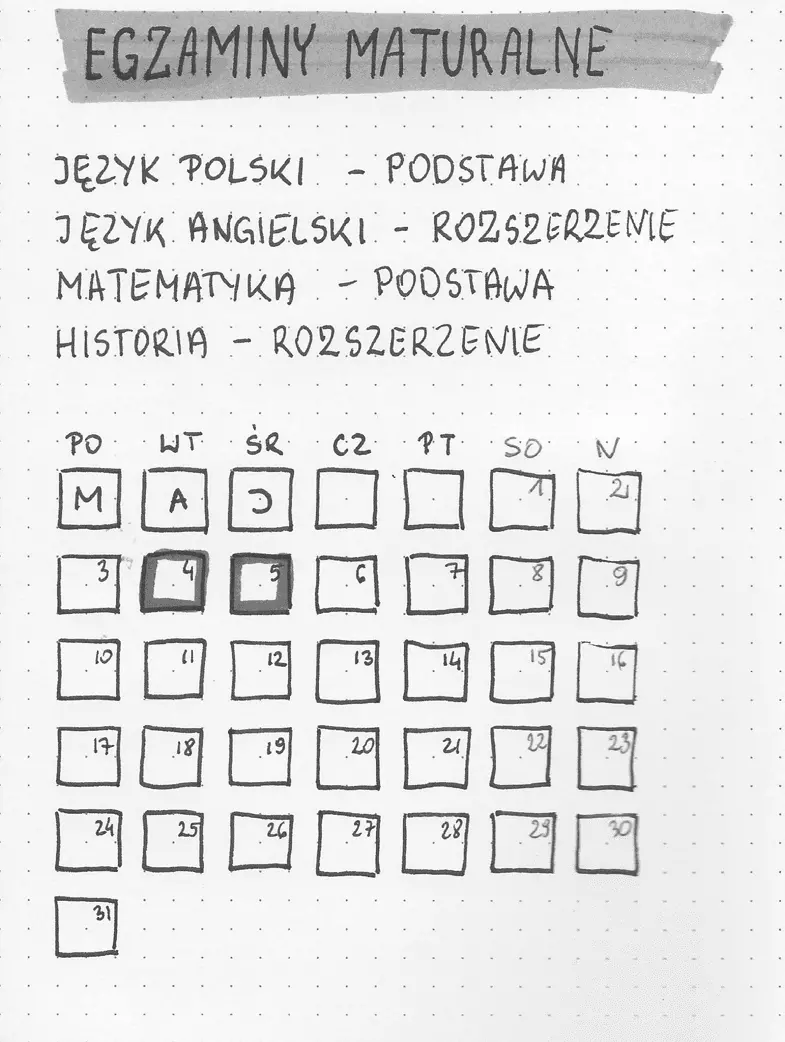 EGZAMINY MATURALNE
JĘZYK POLSKI - PODSTAWA
JĘZYK ANGIELSKI - ROZSZERZENIE
MATEMATYKA - PODSTAWA
HISTORIA - ROZSZERZENIE
PO WT ŚR CZ PT SO N
M A J 1 2
3 4 5 6 7 8 9
10 11 12 13 14 15 16
17 18 19 20 21 22 23
24 25 26 27 28 29 30
31